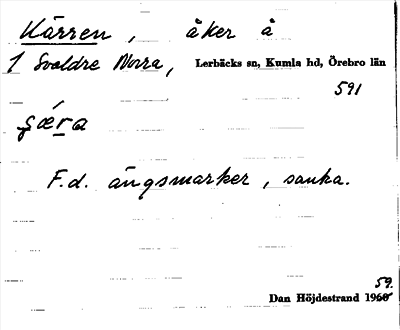 Kärren, åker å
1 Svaldre Norra, Lerbäcks sn, Kumla hd, Örebro län
591
F.d. ängsmarker, sanka.
59.
Dan Höjdestrand 1960